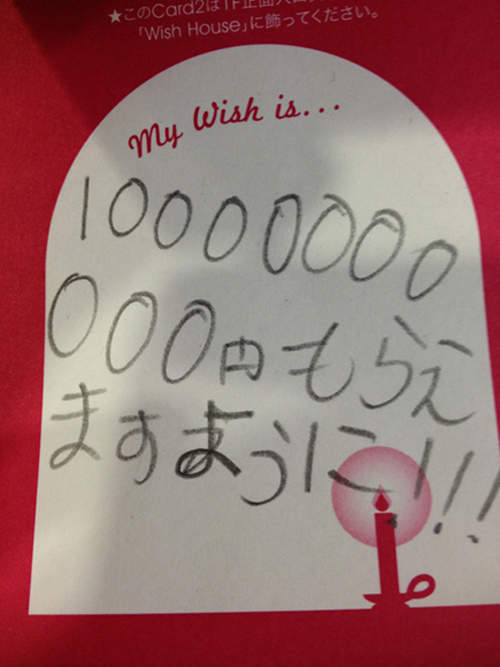 ★このCard2は1F正面入口
「Wish House」に飾ってください。
My Wish is...
10000000
000円もらえ
ますように!!!